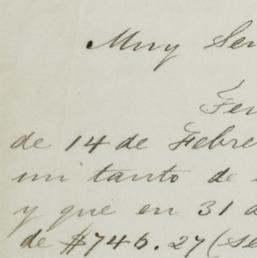 Muy Señ
Fe
de 14 de Febre
un tanto de
y que en 31 d
de $746.27 (Se